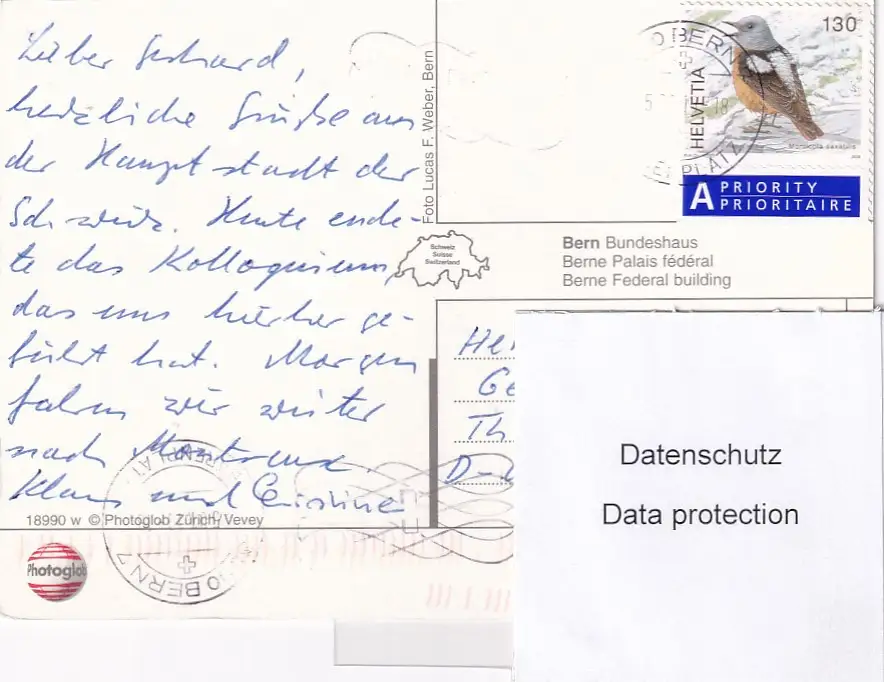 Lieber Gerhard,
herzliche Grüße aus
der Hauptstadt der
Schweiz. Heute ende-
te das Kolloquium,
das uns hierher ge-
führt hat. Morgen
fahren wir weiter
nach Montreux.
Klaus und Christine
18990 w © Photoglob Zürich/Vevey
Photoglob
Foto Lucas F. Weber, Bern
Schweiz
Suisse
Switzerland
BERN
130
HELVETIA
Monticola saxatilis
A PRIORITY
PRIORITAIRE
Bern Bundeshaus
Berne Palais fédéral
Berne Federal building
He
Ge
Th
D-
Datenschutz
Data protection
BERN 7